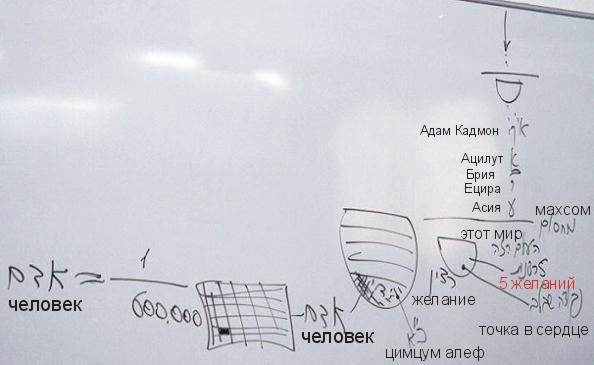 א"ק
Адам Кадмон
Ацилут א
Брия ב
Ецира י
Асия ע
махсом
מחסום
этот мир
העולם הזה
5 желаний
רצון
желание
точка в сердце
1
אדם = 600.000
человек
אדם
человек
цимцум алеф